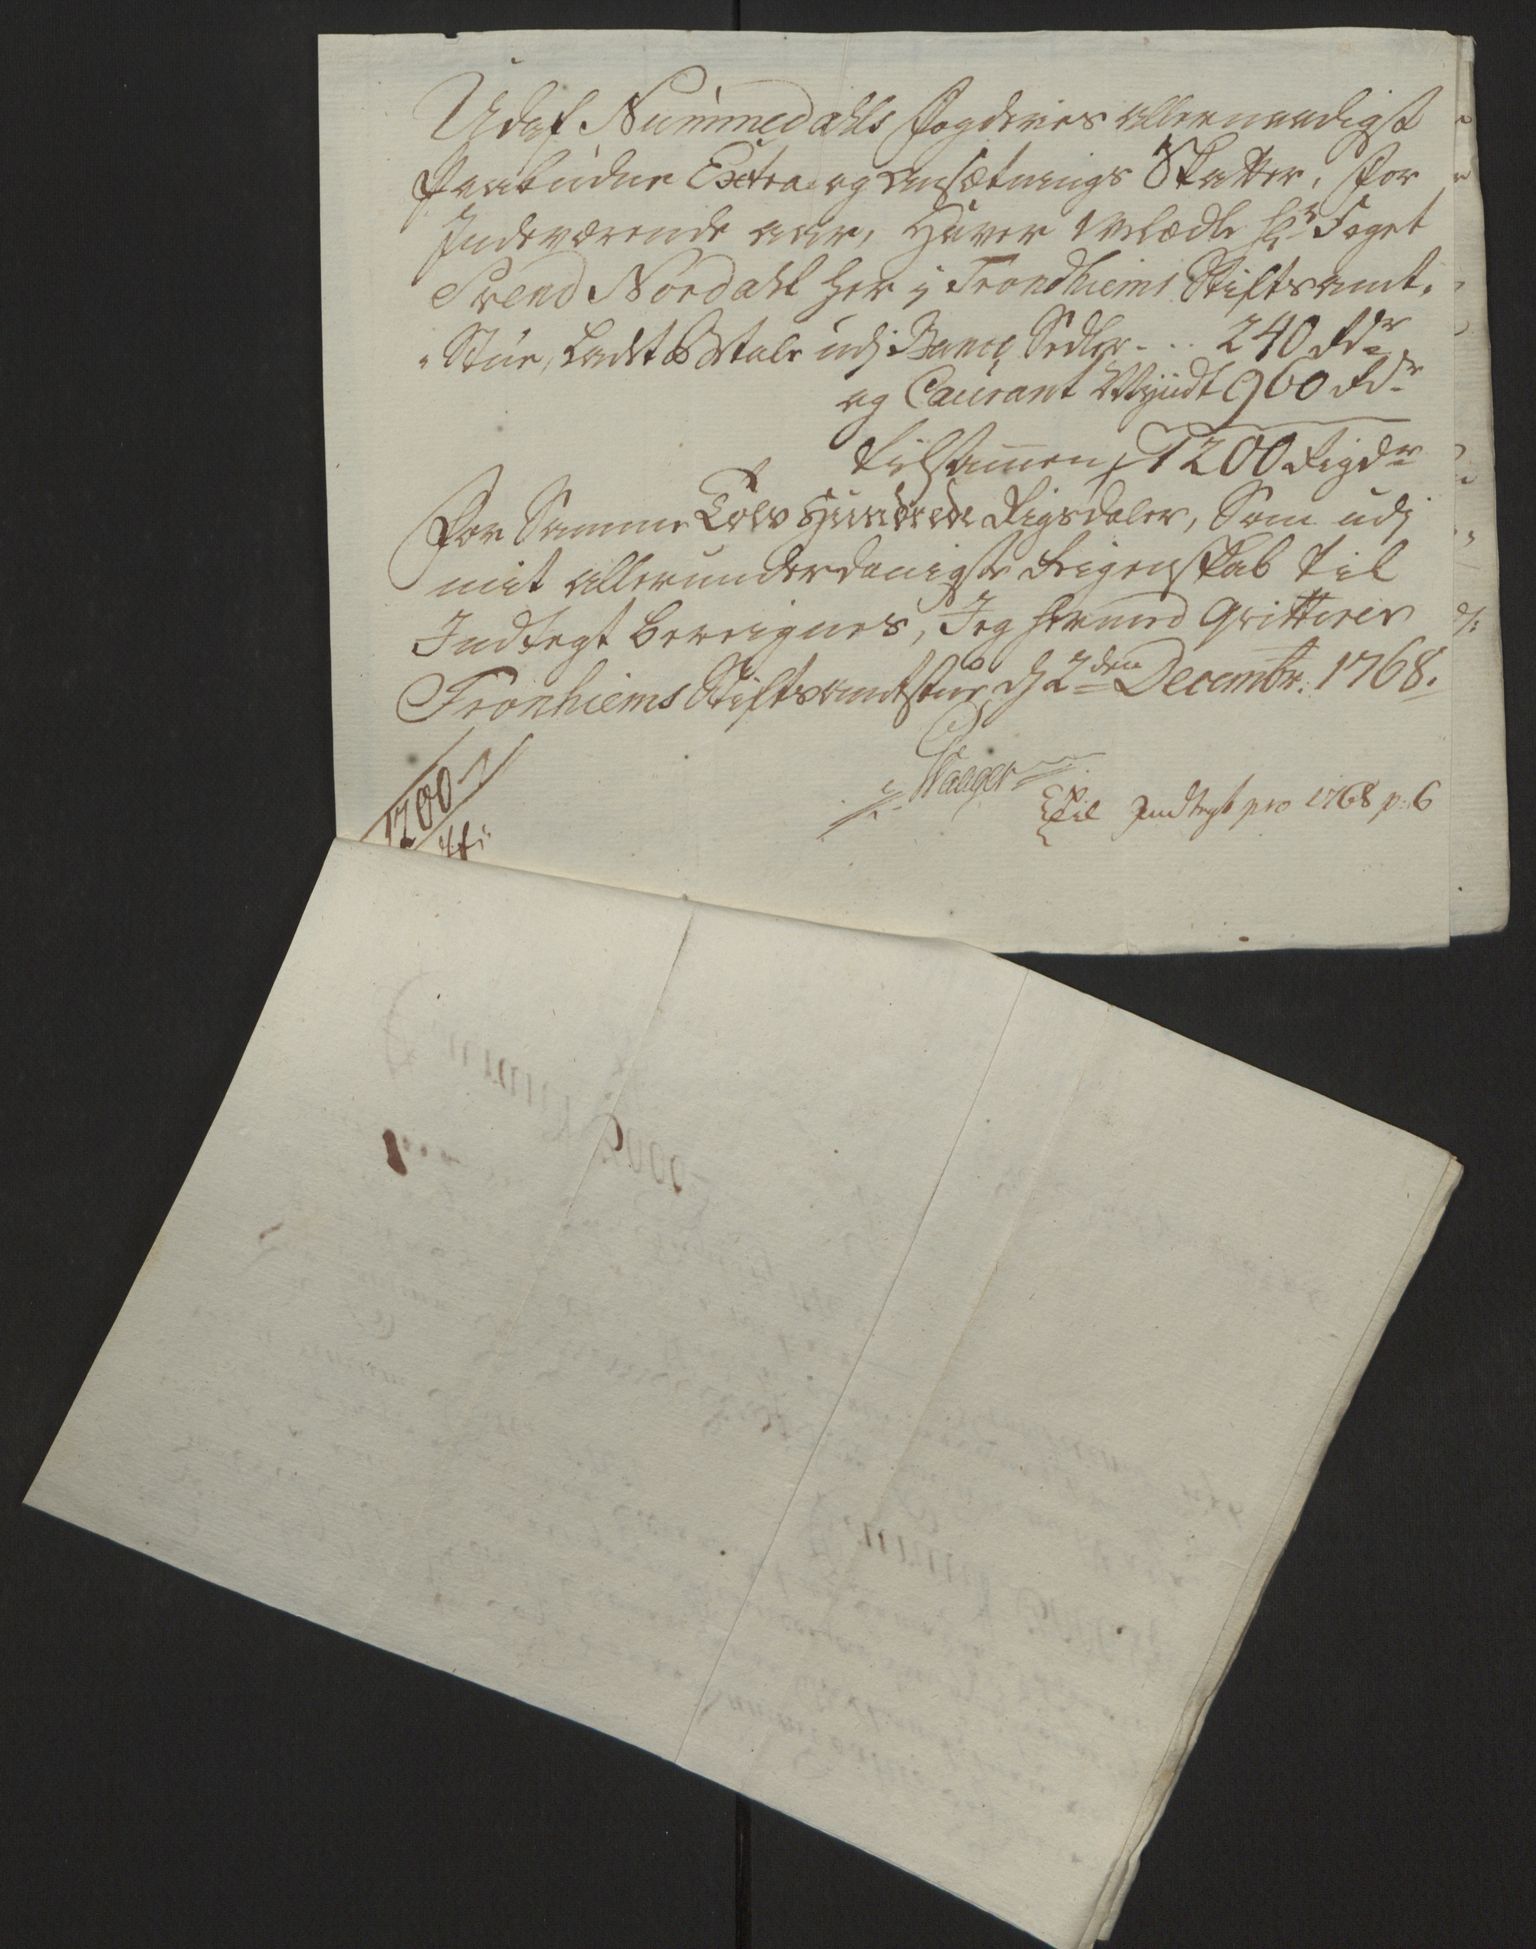 Udaf Nummedahls Fogderies allernaadigst
Paabudne Extra og ansætnings Skatter, for
Indeværende aar, Haver Velædle Hr Foget
Svend Nordahl her i Trondhiems Stiftsamt-
Stue, Ladet Betale udj Banco Sedler - .. 240 Rdr
og Courant Myndt 960 Rdr
tilsammen 1200 Rigdr
For Samme Tolv Hundrede Rigsdaler, Som udj
mit allerunderdanigste Reigenskab til
Indtegt bereignes, Jeg hermed Qvitterer
Tronhiems Stiftsamtstue d 2den Decembr: 1768.
1200
Til Indtegt pro 1768 p: 6